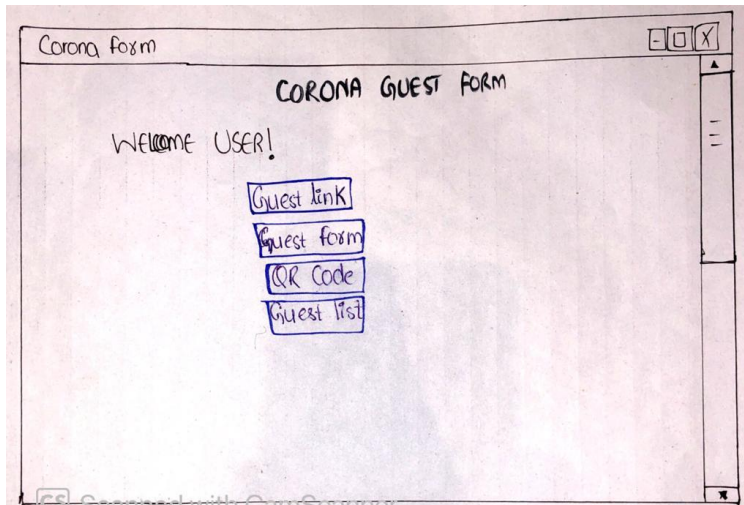 Corona form
- □ X
CORONA GUEST FORM
WELCOME USER!
Guest link
Guest form
QR Code
Guest list
CS Scanned with CamScanner